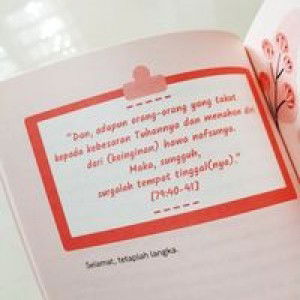 "Dan, adapun orang-orang yang takut
kepada kebesaran Tuhannya dan menahan diri
dari (keinginan) hawa nafsunya.
Maka, sungguh,
surgalah tempat tinggal(nya)."
[79:40-41]
Selamat, tetaplah langka.